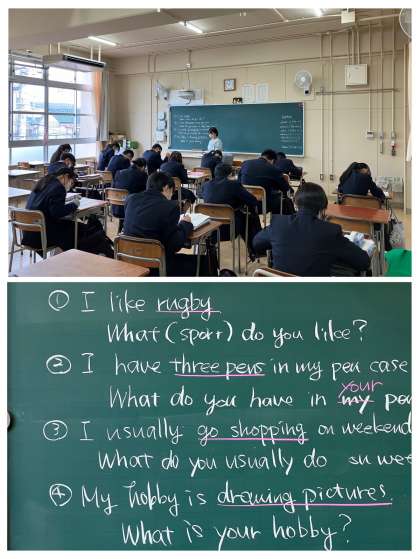 ① I like rugby
What (sport) do you like?
② I have three pens in my pen case
What do you have in my your pen
③ I usually go shopping on weekend
What do you usually do on wee
④ My hobby is drawing pictures.
What is your hobby?